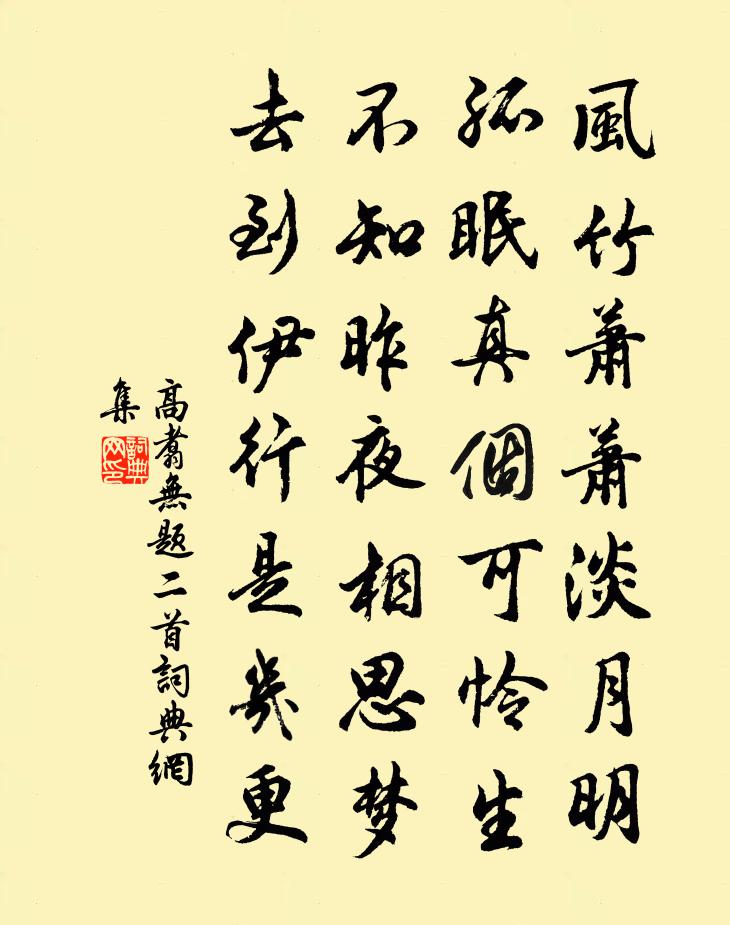 風竹蕭蕭淡月明
孤眠真個可怜生
不知昨夜相思梦
去到伊行是幾更
高翥無題二首詞典網
集
詞典
网印